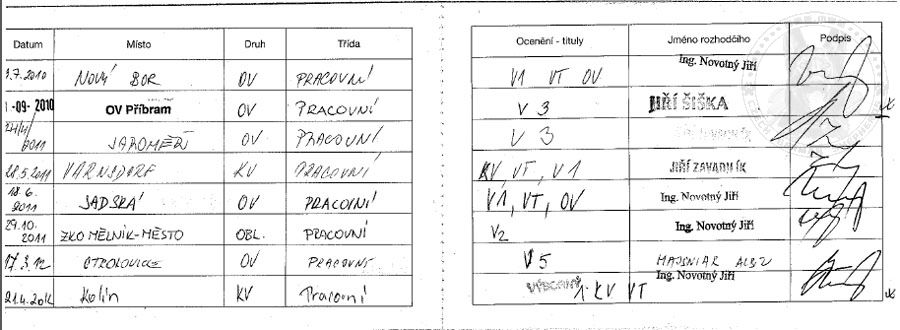 Datum Místo Druh Třída Ocenění - tituly Jméno rozhodčího Podpis
3.7.2010 NOVÝ BOR OV PRACOVNÍ V1 VT OV Ing. Novotný Jiří
-09- 2010 OV Příbram OV PRACOVNÍ V 3 JIŘÍ ŠIŠKA
2011 JAROMĚŘ OV PRACOVNÍ V 3
28.5.2011 VARNSDORF KV PRACOVNÍ KV, VT, V1 JIŘÍ ZAVADNÍK
18.6. 2011 SADSKÁ OV PRACOVNÍ V1, VT, OV Ing. Novotný Jiří
29.10. 2011 ZKO MĚLNÍK-MĚSTO OBL. PRACOVNÍ V2 Ing. Novotný Jiří
17.3.12 OTROLOVICE OV PRACOVNÍ V5
21.4.2012 Kolín KV Pracovní VÝBORNÝ 1 KV VT Ing. Novotný Jiří